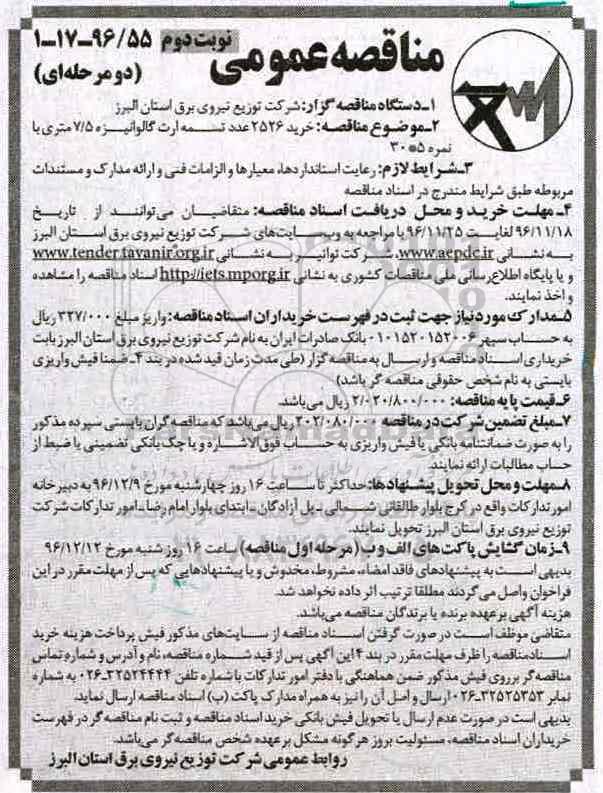 مناقصه عمومی نوبت دوم ۹۶/۵۵-۱۷-۱
(دو مرحله‌ای)
۱-دستگاه مناقصه گزار: شرکت توزیع نیروی برق استان البرز
۲-موضوع مناقصه: خرید ۲۵۲۶ عدد تسمه ارت گالوانیزه ۷/۵ متری با
نمره ۵*۳۰
۳-شرایط لازم: رعایت استانداردها، معیارها و الزامات فنی و ارائه مدارک و مستندات
مربوطه طبق شرایط مندرج در اسناد مناقصه
۴-مهلت خرید و محل دریافت اسناد مناقصه: متقاضیان می‌توانند از تاریخ
۹۶/۱۱/۱۸ لغایت ۹۶/۱۱/۲۵ با مراجعه به وب‌سایت‌های شرکت توزیع نیروی برق استان البرز
به نشانی www.aepdc.ir، شرکت توانیر به نشانی www.tender.tavanir.org.ir
و یا پایگاه اطلاع‌رسانی ملی مناقصات کشوری به نشانی http://iets.mporg.ir اسناد مناقصه را مشاهده
و اخذ نمایند.
۵-مدارک مورد نیاز جهت ثبت در فهرست خریداران اسناد مناقصه: واریز مبلغ ۳۲۷/۰۰۰ ریال
به حساب سپهر ۰۱۰۱۵۲۰۱۵۲۰۰۶ بانک صادرات ایران به نام شرکت توزیع نیروی برق استان البرز بابت
خریداری اسناد مناقصه و ارسال به مناقصه گزار (طی مدت زمان قید شده در بند ۴-ضمنا فیش واریزی
بایستی به نام شخص حقوقی مناقصه گر باشد)
۶-قیمت پایه مناقصه: ۲/۰۲۰/۸۰۰/۰۰۰ ریال می‌باشد.
۷-مبلغ تضمین شرکت در مناقصه ۲۰۲/۰۸۰/۰۰۰ ریال می‌باشد که مناقصه گران بایستی سپرده مذکور
را به صورت ضمانتنامه بانکی یا فیش واریزی به حساب فوق‌الاشاره و یا چک بانکی تضمینی یا ضبط از
حساب مطالبات ارائه نمایند.
۸-مهلت و محل تحویل پیشنهادها: حداکثر تا ساعت ۱۶ روز چهارشنبه مورخ ۹۶/۱۲/۹ به دبیر خانه
امور تدارکات واقع در کرج بلوار طالقانی شمالی-پل آزادگان-ابتدای بلوار امام رضا-امور تدارکات شرکت
توزیع نیروی برق استان البرز تحویل نمایند.
۹-زمان گشایش پاکت‌های الف و ب (مرحله اول مناقصه) ساعت ۱۶ روز شنبه مورخ ۹۶/۱۲/۱۲
بدیهی است به پیشنهادهای فاقد امضاء، مشروط، مخدوش و یا پیشنهادهایی که پس از مهلت مقرر در این
فراخوان واصل می‌گردند مطلقا ترتیب اثر داده نخواهد شد.
هزینه آگهی بر عهده برنده یا برندگان مناقصه می‌باشد.
متقاضی موظف است در صورت گرفتن اسناد مناقصه از سایت‌های مذکور فیش پرداخت هزینه خرید
اسناد مناقصه را ظرف مهلت مقرر در بند ۴ این آگهی پس از قید شماره مناقصه، نام و آدرس و شماره تماس
مناقصه گر بر روی فیش مذکور ضمن هماهنگی با دفتر امور تدارکات با شماره تلفن ۳۲۵۲۴۴۴۴-۰۲۶ به شماره
نمابر ۳۲۵۲۵۳۵۳-۰۲۶ ارسال و اصل آن را نیز به همراه مدارک پاکت (ب) اسناد مناقصه ارسال نماید.
بدیهی است در صورت عدم ارسال یا تحویل فیش بانکی خرید اسناد مناقصه و ثبت نام مناقصه گر در فهرست
خریداران اسناد مناقصه، مسئولیت بروز هر گونه مشکل بر عهده شخص مناقصه گر می‌باشد.
روابط عمومی شرکت توزیع نیروی برق استان البرز